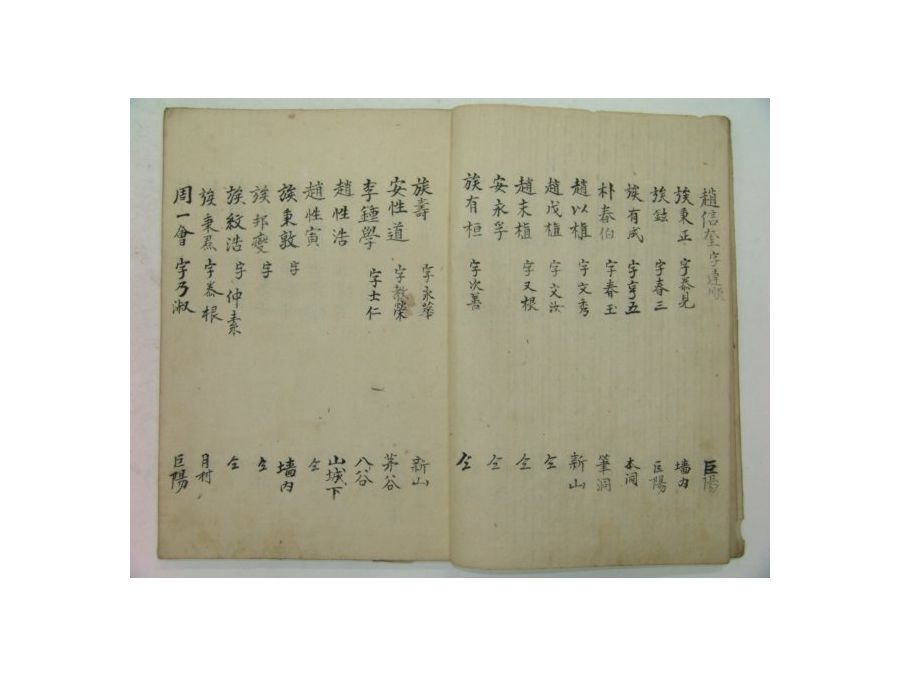 趙信奎 字達順 巨陽
族東正 字泰見 墻内
族鉉 字春三 巨陽
族有成 字亨五 本洞
朴春伯 字春玉 筆洞
趙以植 字文秀 新山
趙戊植 字文汝 仝
趙末植 字又根 仝
安永孚 仝
族有桓 字次善 仝
族壽 字永華 新山
安性道 字敎榮 茅谷
李鍾學 字士仁 八谷
趙性浩 山城下
趙性寅 仝
族東敦 字 墻内
族邦燮 字 仝
族紋浩 字仲素 仝
族秉 字泰根 月村
周一會 字乃淑 巨陽